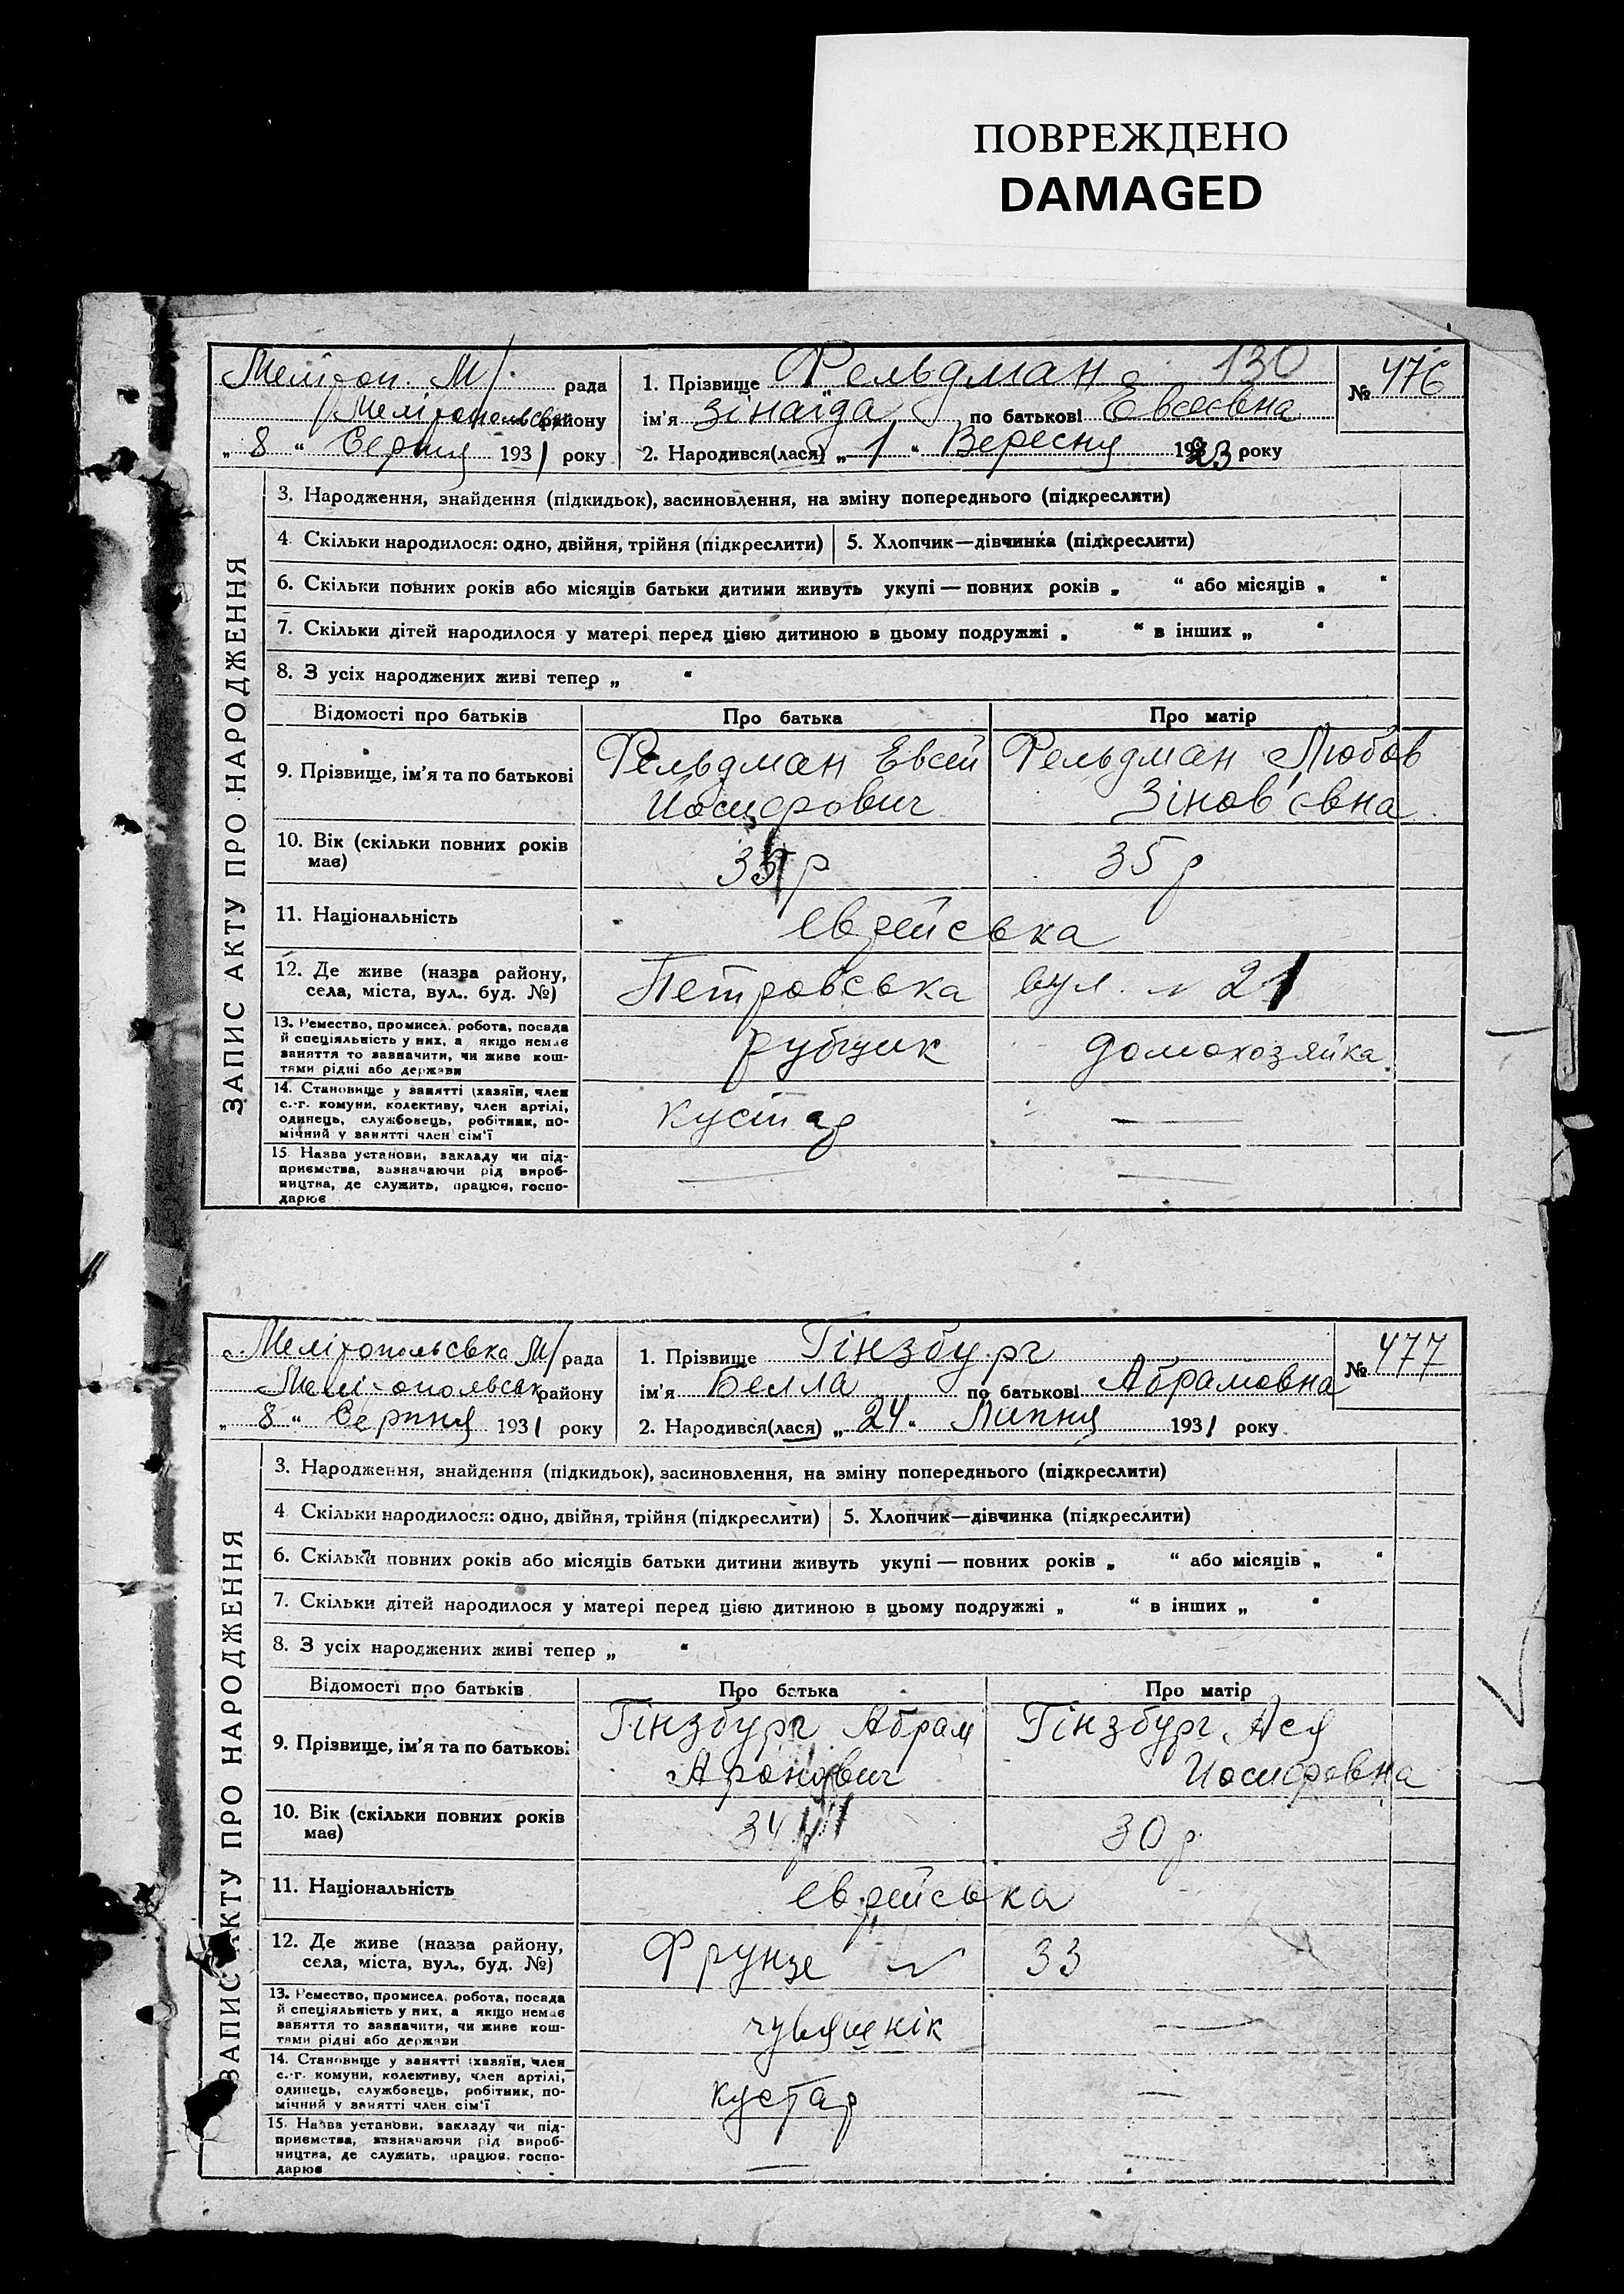 ПОВРЕЖДЕНО
DAMAGED
Мелітоп. М/ рада
Мелітопольськ району
„ 8 “ Серпня 1931 року
1. Прізвище Фельдман 130
ім'я Зінаїда по батькові Евсеевна
2. Народився(лася) „ 1 “ Вересня 1923 року
№ 476
ЗАПИС АКТУ ПРО НАРОДЖЕННЯ
3. Народження, знайдення (підкидьок), засиновлення, на зміну попереднього (підкреслити)
4 Скільки народилося: одно, двійня, трійня (підкреслити) 5. Хлопчик—дівчинка (підкреслити)
6. Скільки повних років або місяців батьки дитини живуть укупі — повних років „ “ або місяців „ “
7. Скільки дітей народилося у матері перед цією дитиною в цьому подружжі „ “ в інших „ “
8. З усіх народжених живі тепер „ “
Відомості про батьків Про батька Про матір
9. Прізвище, ім'я та по батькові
Фельдман Евсей
Иосифович
Фельдман Любов
Зінов'євна
10. Вік (скільки повних років
має)
35 р
11. Національність
еврейська
12. Де живе (назва району,
села, міста, вул.. буд. №)
Петровська вул. № 21
13. Ремество, промисел, робота, посада
й спеціяльність у них, а якщо немає
заняття то зазначити, чи живе кош-
тами рідні або держави
рубщик
домохозяйка
14. Становище у занятті (хазяїн, член
с.-г. комуни, колективу, член артілі,
одинець, службовець, робітник, по-
мічний у занятті член сім'ї
кустар
—
15 Назва установи, закладу чи під-
приємства, зазначаючи рід вироб-
ництва, де служить, працює, госпо-
дарює
—
—
Мелітопольська М/ рада
Мелітопольськ району
„ 8 “ Серпня 1931 року
1. Прізвище Гінзбург
ім'я Белла по батькові Абрамовна
2. Народився(лася) „ 24 “ Липня 1931 року
№ 477
ЗАПИС АКТУ ПРО НАРОДЖЕННЯ
3. Народження, знайдення (підкидьок), засиновлення, на зміну попереднього (підкреслити)
4 Скільки народилося: одно, двійня, трійня (підкреслити) 5. Хлопчик—дівчинка (підкреслити)
6. Скільки повних років або місяців батьки дитини живуть укупі — повних років „ “ або місяців „ “
7. Скільки дітей народилося у матері перед цією дитиною в цьому подружжі „ “ в інших „ “
8. З усіх народжених живі тепер „ “
Відомості про батьків Про батька Про матір
9. Прізвище, ім'я та по батькові
Гінзбург Абрам
Аронович
Гінзбург Ася
Иосифовна
10. Вік (скільки повних років
має)
34 р
30 р
11. Національність
еврейська
12. Де живе (назва району,
села, міста, вул., буд. №)
Фрунзе № 33
13. Ремество, промисел, робота, посада
й спеціяльність у них, а якщо немає
заняття то зазначити, чи живе кош-
тами рідні або держави
чувяшнік
—
14. Становище у занятті (хазяїн, член
с.-г. комуни, колективу, член артілі,
одинець, службовець, робітник, по-
мічний у занятті член сім'ї
кустар
—
15. Назва установи, закладу чи під-
приємства, зазначаючи рід вироб-
ництва, де служить, працює, госпо-
дарює
—
—